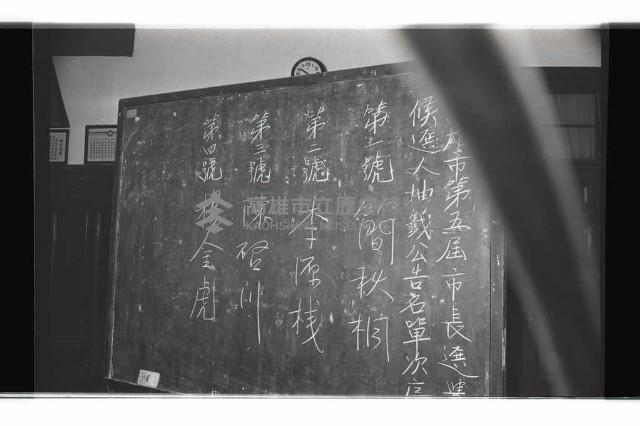 雄市第五屆市長選舉
候選人抽錢公告名單次序
第一號 簡秋桐
第二號 李源棧
第三號 陳啓川
第四號 楊金虎
高雄市立歷
KAOHSIUNG MUSEUM